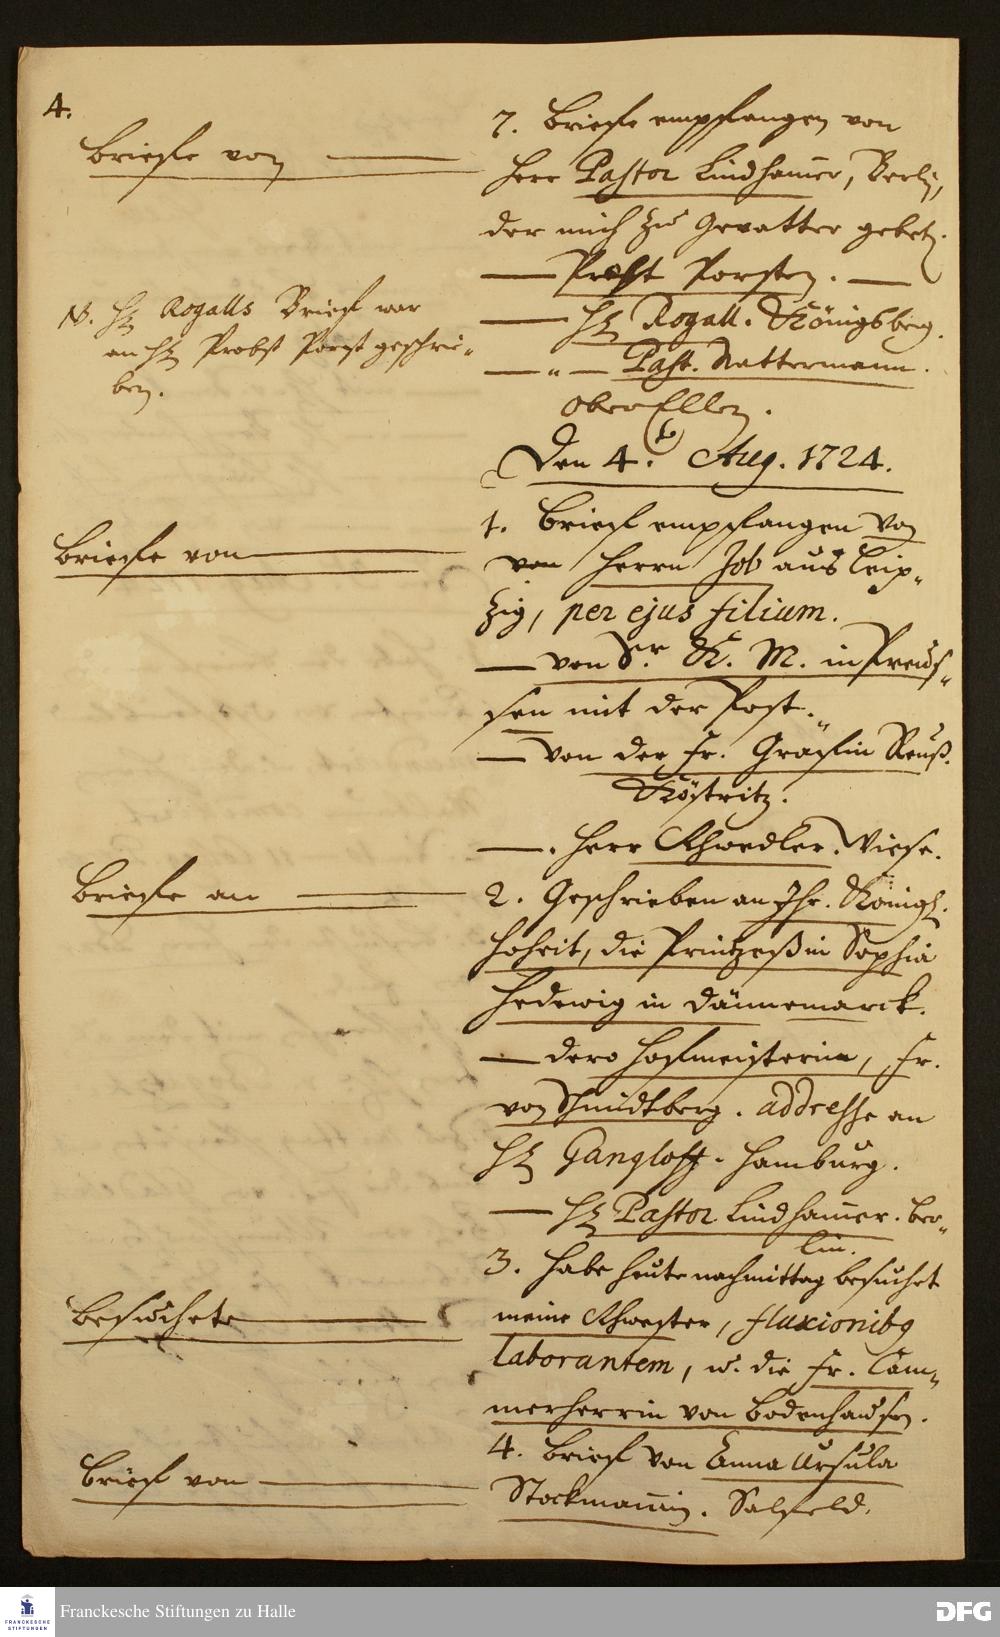 4.
Briefe von
7. Briefe empfangen von
Herr Pastor Lindhamer, Berlin,
der mich zu Gevatter gebeten.
— Probst Porsten. —
NB. H. Rogalls Brief war
an H. Probst Porst geschrie-
ben.
— H. Rogall. Königsberg.
— " — Past. Nattermann.
OberEllen.
Den 4. Aug. 1724.
Briefe von
1. Brief empfangen von
von Herrn Job aus Leip-
zig, per ejus filium.
— von Sr. K. M. in Preus-
sen mit der Post.
— von der Fr. Gräfin Reuß.
Köstritz.
— . Herr Schwedler. Wiese.
Briefe an
2. Geschrieben an Ihr. Königl.
Hoheit, die Printzeßin Sophia
Hedewig in Dännemarck.
— dero Hofmeisterin, Fr.
von Schmidtberg. addresse an
H. Gangloff. Hamburg.
— H. Pastor Lindhamer. Ber-
lin.
Besuchete
3. Habe heute nachmittag besuchet
meine Schwester, fluxionibq
laborantem, u. die Fr. Cam-
merherrin von Bodenhausen.
Brief von
4. Brief von Anna Ursula
Stockmannin. Salfeld.
FRANCKESCHE STIFTUNGEN
Franckesche Stiftungen zu Halle
DFG